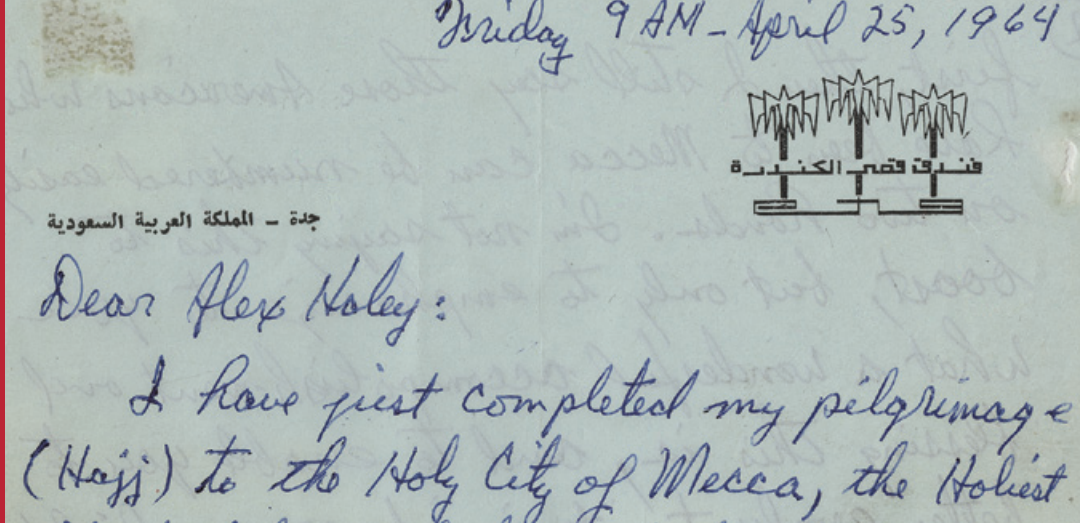 Friday 9 AM - April 25, 1964
فندق قصر الكندرة
جدة – المملكة العربية السعودية
Dear Alex Haley:
I have just completed my pilgrimage
(Hajj) to the Holy City of Mecca, the Holiest